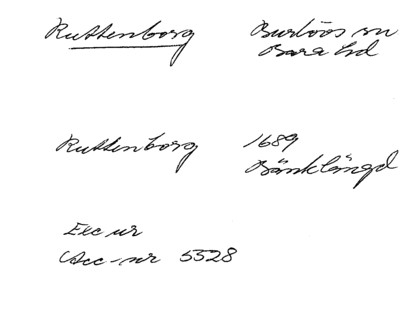 Ruttenborg Burlövs sn
Bara hd
Ruttenborg 1689
Bänklängd
Exc ur
Acc-nr 5528